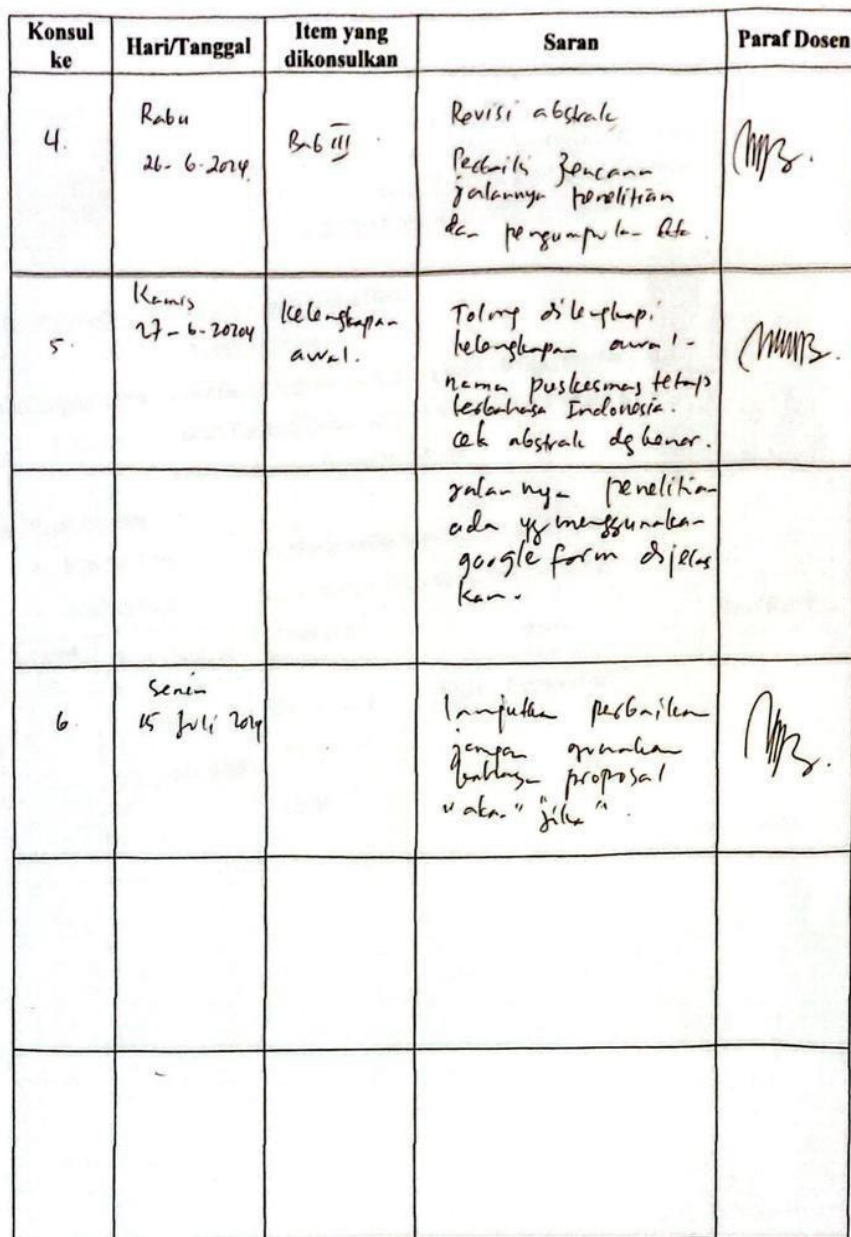 Konsul ke
Hari/Tanggal
Item yang dikonsulkan
Saran
Paraf Dosen
4.
Rabu
26-6-2024
Bab III
Revisi abstrak
Perbaiki Rencana
jalannya penelitian
dan pengumpulan data.
5.
Kamis
27-6-20204
Kelengkapan
awal.
Tolong dilengkapi
kelengkapan awal-
nama puskesmas tetap
berbahasa Indonesia.
cek abstrak dg benar.
jalannya penelitian
ada yg menggunakan
google form dijelas
kan.
6
Senin
15 Juli 2024
lanjutkan perbaikan
jangan gunakan
bahasa proposal
"akan" "jika".